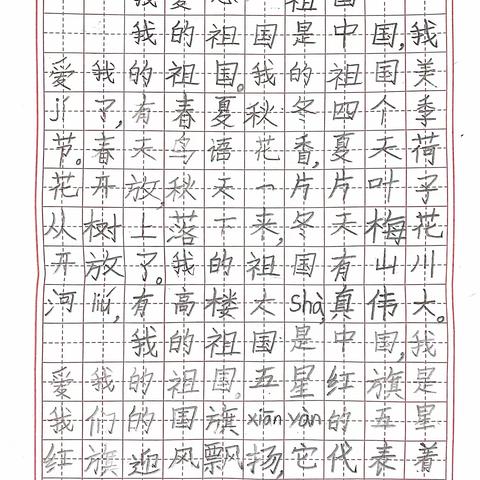 我的祖国是中国,我
爱我的祖国。我的祖国美
jí了,有春夏秋冬四个季
节。春天鸟语花香,夏天荷
花开放,秋天一片片叶子
从树上落下来,冬天梅花
开放了。我的祖国有山川
河liú,有高楼大Shà,真伟大。
我的祖国是中国,我
爱我的祖国。五星红旗是
我们的国旗xiān yàn的五星
红旗迎风飘扬,它代表着